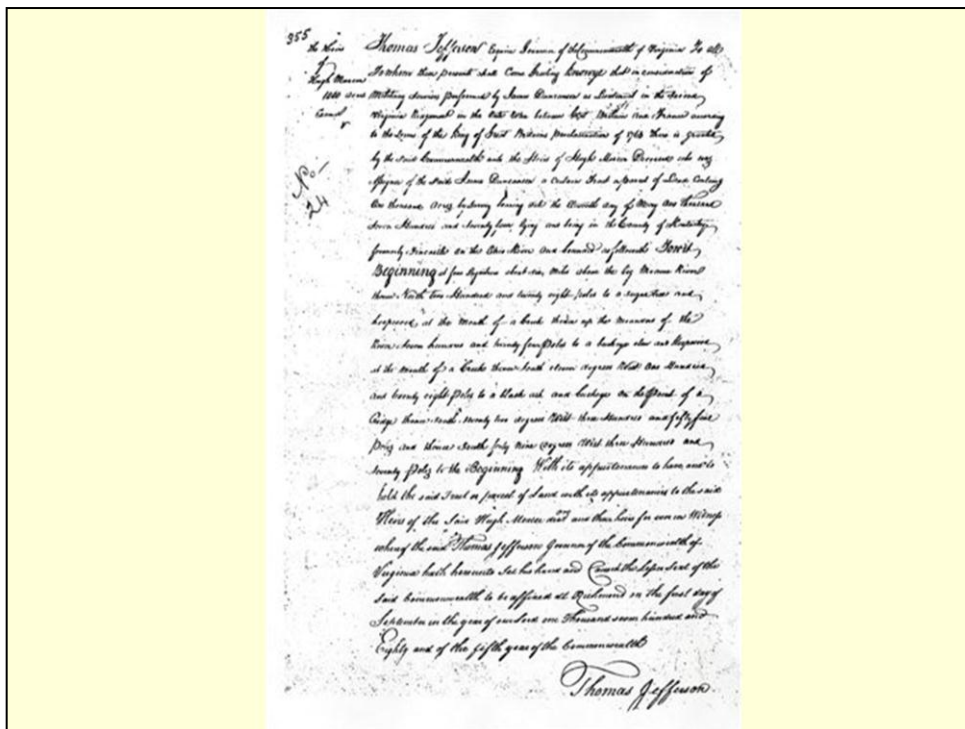 355
the Heirs
of
Hugh Mercer
1000 acres
No.
24
Thomas Jefferson Esquire Governor of the Commonwealth of Virginia To all
To whom these presents shall Come Greeting Knowye that in consideration of
Military Service performed by James Duncanson as Lieutenant in the Second
Virginia Regiment in the late War between Great Britain and France according
to the terms of the King of Great Britains Proclamation of 1763 There is granted
by the said Commonwealth unto the Heirs of Hugh Mercer Deceased who was
Assignee of the said James Duncanson a certain Tract or parcel of Land Containg
One thousand acres by Survey bearing date the day of May One thousand
Seven Hundred and Seventy four lying and being in the County of Kentucky
formerly Fincastle on the Ohio River and bounded as followeth Towit
Beginning at four about six Miles above the big Miamee River
thence North two Hundred and twenty eight poles to a sugar tree and
at the Mouth of a Creek thence up the Meanders of the
River seven hundred and twenty four Poles to a buckeye elm and
at the Mouth of a Creek thence South eleven degrees West One Hundred
and twenty eight Poles to a black ash and buckeye on the of a
Ridge thence South Seventy two degrees West three Hundred and fifty five
Poles and thence South forty nine degrees West three Hundred and
Seventy Poles to the Beginning With its appurtenances to have and to
hold the said Tract or parcel of Land with its appurtenances to the said
Heirs of the said Hugh Mercer decd. and their heirs forever In Witness
whereof the said Thomas Jefferson Governor of the Commonwealth of
Virginia hath hereunto Set his hand and Caused the Lesser Seal of the
Said Commonwealth to be affixed at Richmond on the first day of
September in the year of our Lord one Thousand seven hundred and
Eighty and of the fifth year of the Commonwealth
Thomas Jefferson